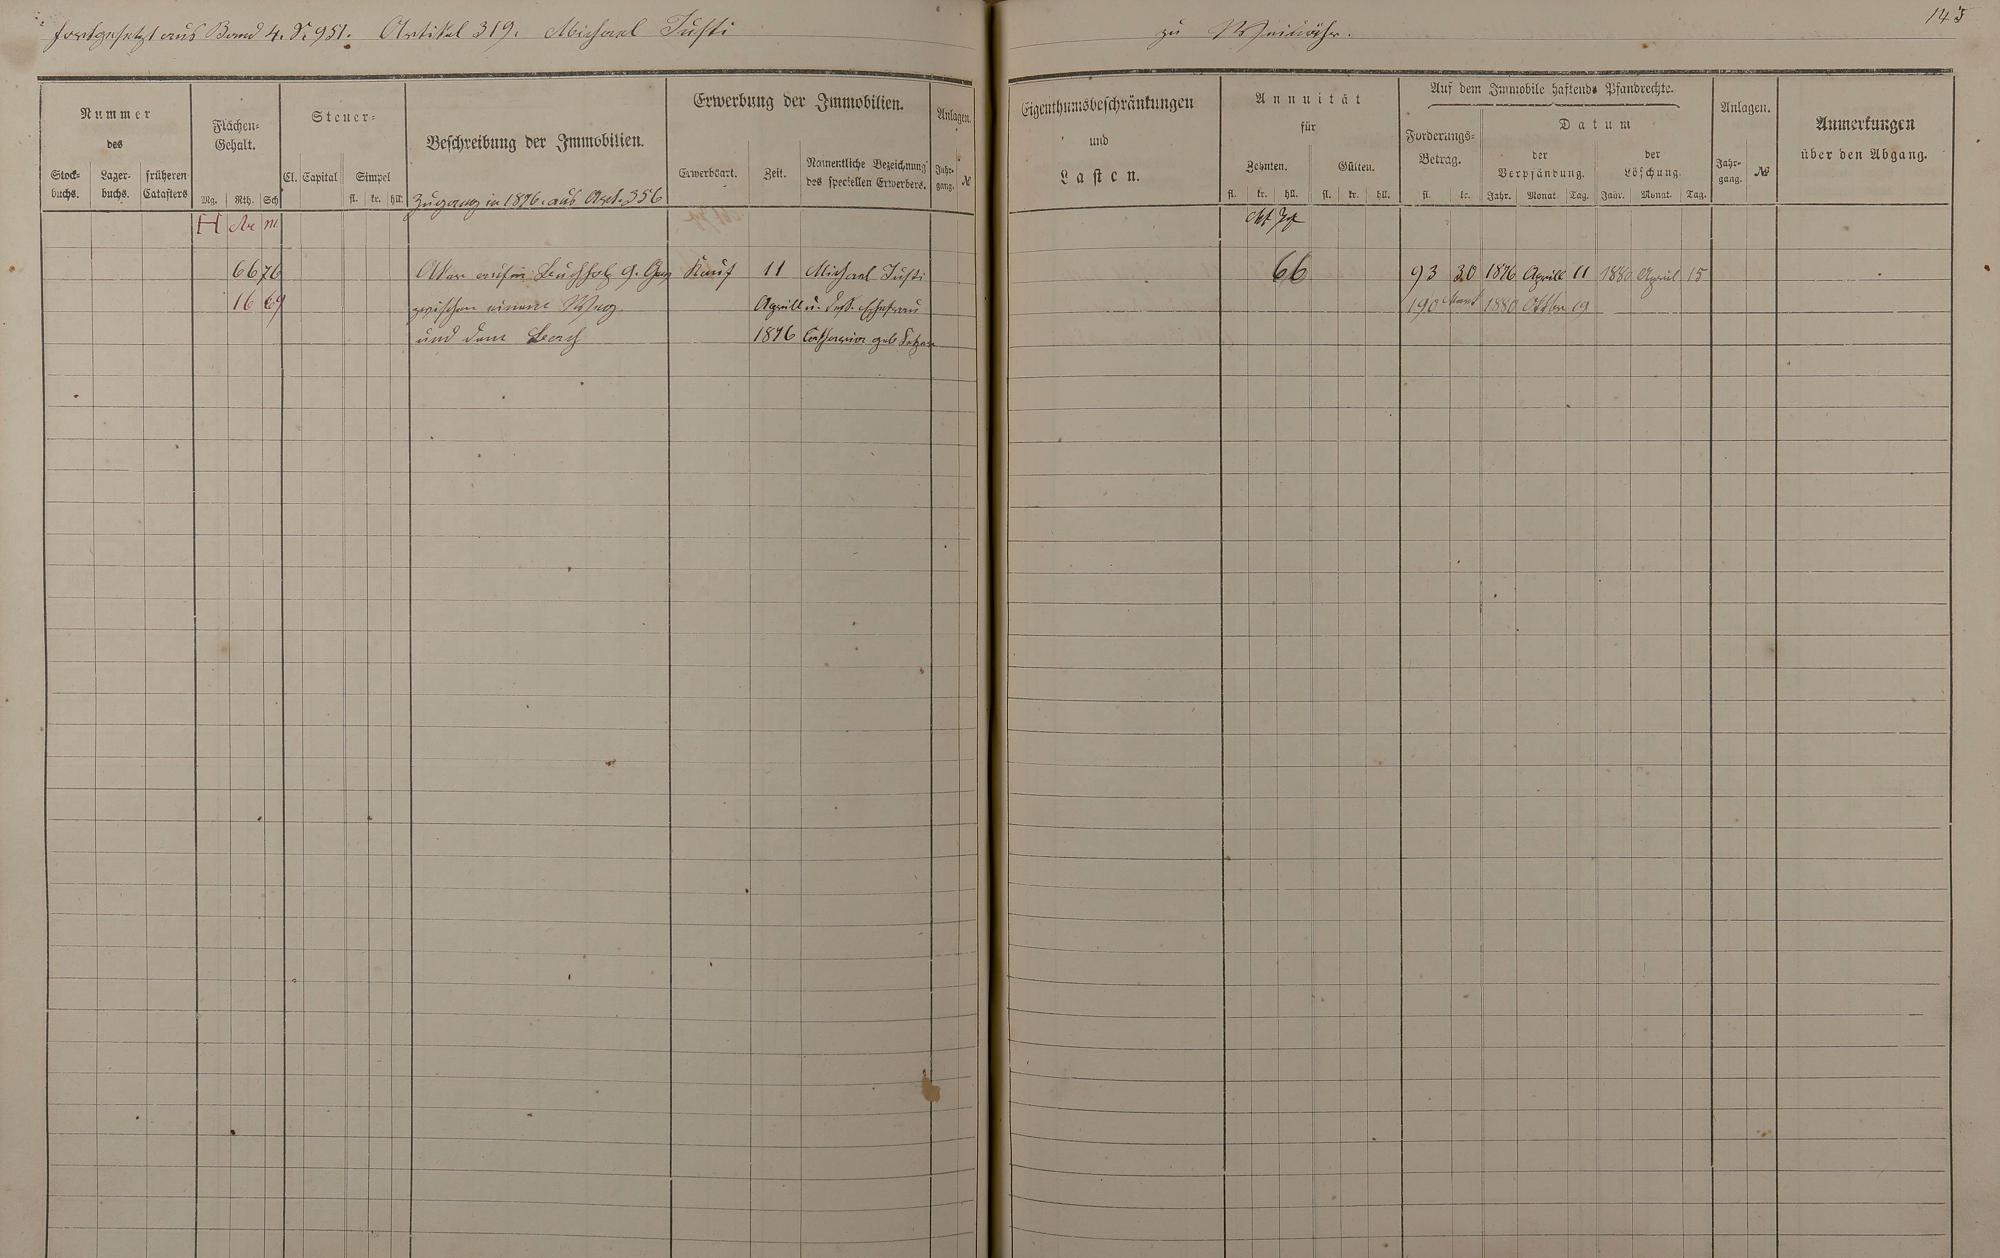 fortgesetzt aus Band 4. S. 951. Artikel 319. Michael Justi
zu
143
Nummer
des
Stock-
buchs.
Lager-
buchs.
früheren
Catasters
Flächen-
Gehalt.
Mg. Rth. Sch
Steuer-
Cl. Capital Simpel
fl. kr. hll.
Beschreibung der Immobilien.
Erwerbung der Immobilien.
Erwerbsart. Zeit. Namentliche Bezeichnung
des speciellen Erwerbers.
Anlagen.
Jahr-
gang. №
Eigenthumsbeschränkungen
und
Lasten.
Annuität
für
Zehnten. Gülten.
fl. kr. hll. fl. kr. hll.
Auf dem Immobile haftende Pfandrechte.
Forderungs-
Betrag.
fl. kr.
Datum
der
Verpfändung.
Jahr. Monat. Tag.
der
Löschung.
Jahr. Monat. Tag.
Anlagen.
Jahr-
gang. №
Anmerkungen
über den Abgang.
Zugang in 1876. aus Art. 356
H Ar m
66 76 Acker Buchholz Kauf 11 Michael Justi 66 93 30 1876 Aprill 11 1880 April 15
16 69 zwischen einem Weg Aprill u. dess. Ehefrau 190 Mark 1880 Oktbr 19
und dem 1876 Catharina geb.